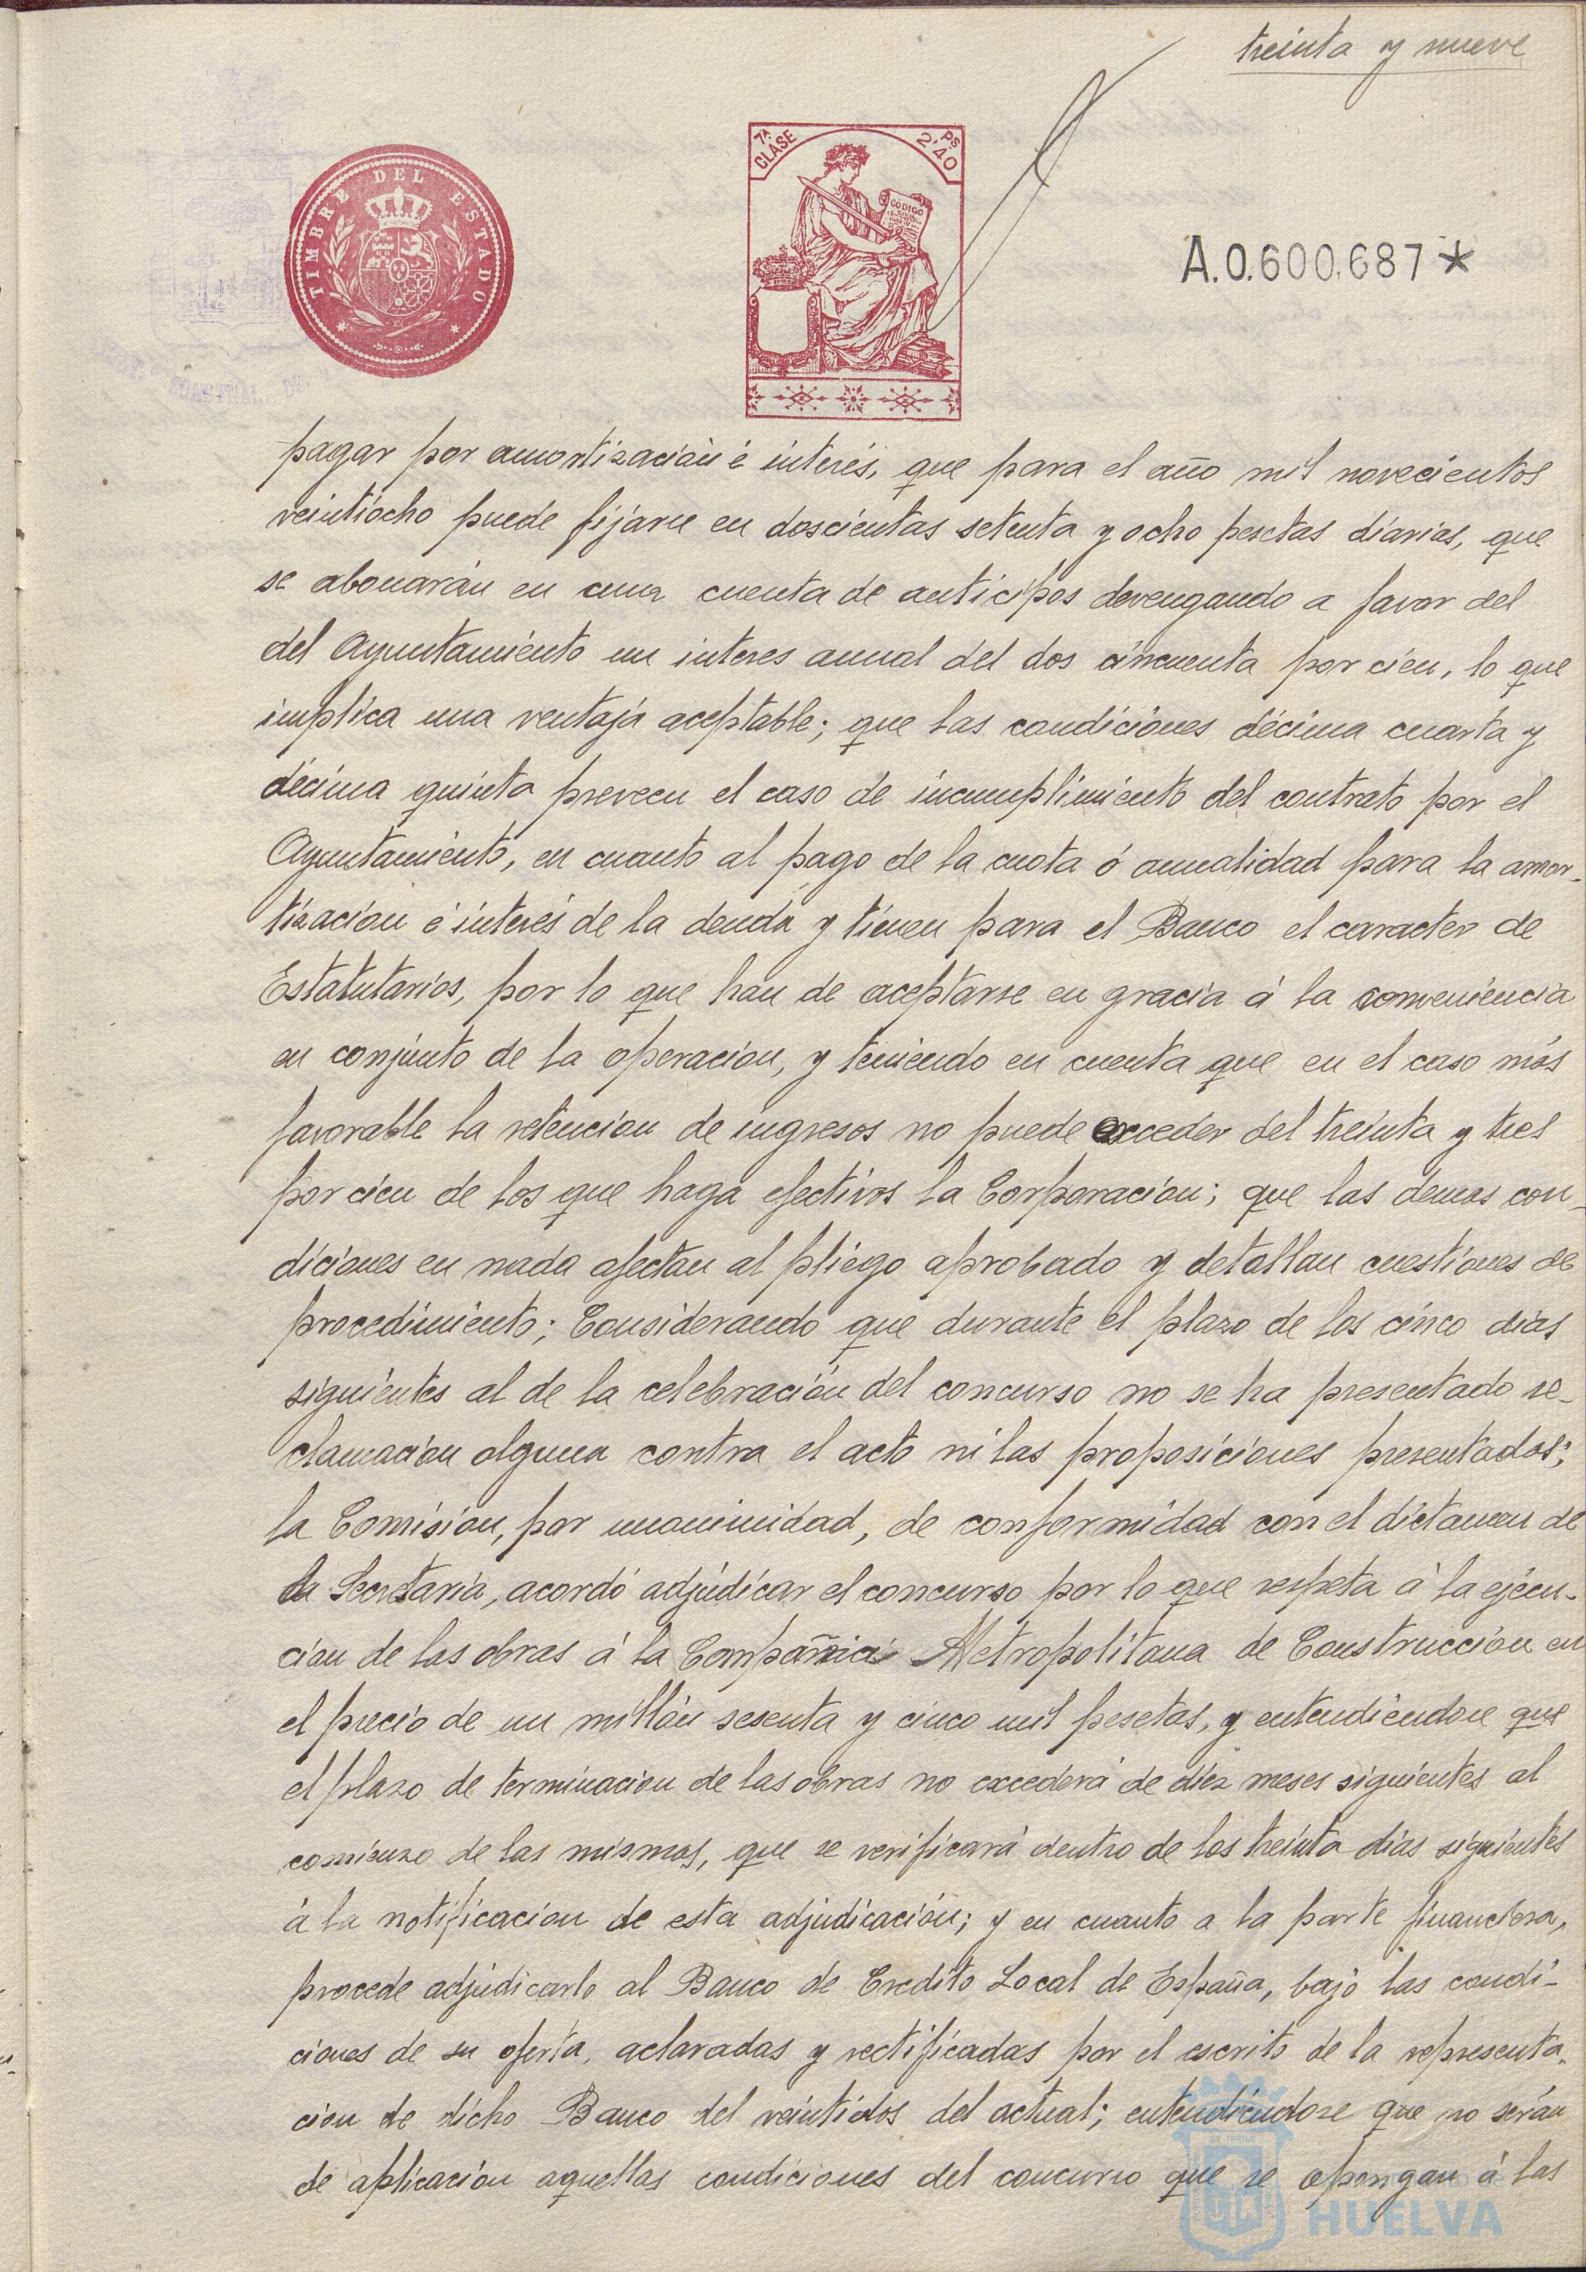 treinta y nueve
TIMBRE DEL ESTADO
7ª CLASE
Ps 2'40
CODIGO
A.0.600.687*
pagar por amortización é interés, que para el año mil novecientos
veintiocho puede fijarse en doscientas setenta y ocho pesetas diarias, que
se abonarán en una cuenta de anticipos devengando a favor del
del Ayuntamiento un interes anual del dos cincuenta por cien, lo que
implica una ventaja aceptable; que las condiciones décima cuarta y
décima quinta preveen el caso de incumplimiento del contrato por el
Ayuntamiento, en cuanto al pago de la cuota ó anualidad para la amor-
tizacion é interés de la deuda y tienen para el Banco el caracter de
Estatutarios, por lo que han de aceptarse en gracia á la conveniencia
en conjunto de la operacion, y teniendo en cuenta que en el caso más
favorable la retencion de ingresos no puede exceder del treinta y tres
por cien de los que haga efectivos la Corporacion; que las demas con-
diciones en nada afectan al pliego aprobado y detallan cuestiones de
procedimiento; Considerando que durante el plazo de los cinco dias
siguientes al de la celebración del concurso no se ha presentado re-
clamacion alguna contra el acto ni las proposiciones presentadas;
la Comision, por unanimidad, de conformidad con el dictamen de
la Secretaria, acordó adjudicar el concurso por lo que respeta á la ejecu-
cion de las obras á la Compañia Metropolitana de Construcción en
el precio de un millón sesenta y cinco mil pesetas, y entendiéndose que
el plazo de terminacion de las obras no excederá de diez meses siguientes al
comienzo de las mismas, que se verificará dentro de los treinta dias siguientes
á la notificacion de esta adjudicación; y en cuanto a la parte financiera,
procede adjudicarlo al Banco de Credito Local de España, bajo las condi-
ciones de su oferta, aclaradas y rectificadas por el escrito de la representa-
cion de dicho Banco del veintidos del actual; entendiéndose que no serán
de aplicacion aquellas condiciones del concurso que se opongan á las
HUELVA